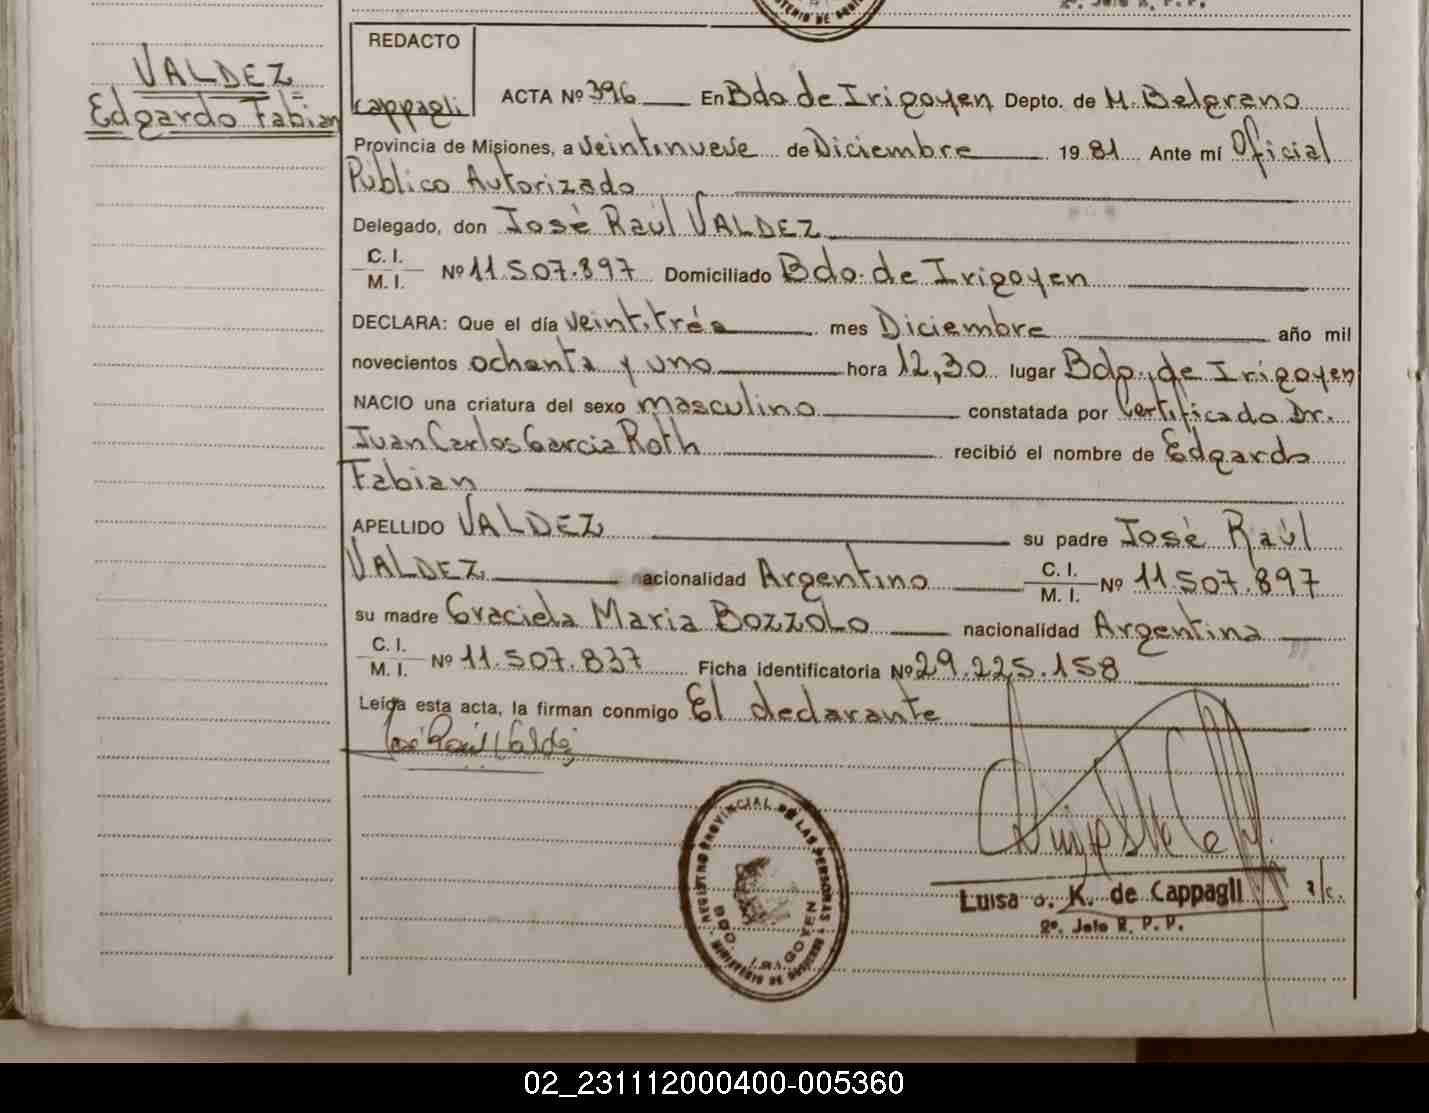 VALDEZ
Edgardo Fabian
REDACTO
cappagli
ACTA Nº 396 En Bdo. de Irigoyen Depto. de M. Belgrano
Provincia de Misiones, a veintinueve de Diciembre 19 81 Ante mí Oficial
Público Autorizado
Delegado, don José Raúl VALDEZ
C. I.
M. I. Nº 11.507.897 Domiciliado Bdo. de Irigoyen
DECLARA: Que el día veintitrés mes Diciembre año mil
novecientos ochenta y uno hora 12,30 lugar Bdo. de Irigoyen
NACIO una criatura del sexo masculino constatada por Certificado Dr.
Juan Carlos Garcia Roth recibió el nombre de Edgardo
Fabian
APELLIDO VALDEZ su padre José Raúl
VALDEZ nacionalidad Argentino C. I.
M. I. Nº 11.507.897
su madre Graciela Maria BOZZOLO nacionalidad Argentina
C. I.
M. I. Nº 11.507.837 Ficha identificatoria Nº 29.225.158
Leída esta acta, la firman conmigo El declarante
José Raúl Valdez
REGISTRO PROVINCIAL DE LAS PERSONAS
BDO. IRIGOYEN
MINISTERIO DE GOBIERNO
Luisa K. de Cappagli a/c.
2º. Jefe R. P. P.
02_231112000400-005360